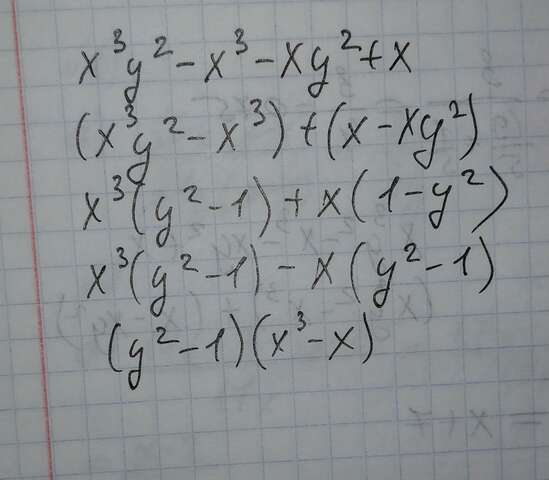 x³y² - x³ - xy² + x
(x³y² - x³) + (x - xy²)
x³(y² - 1) + x(1 - y²)
x³(y² - 1) - x(y² - 1)
(y² - 1)(x³ - x)
= x + 7